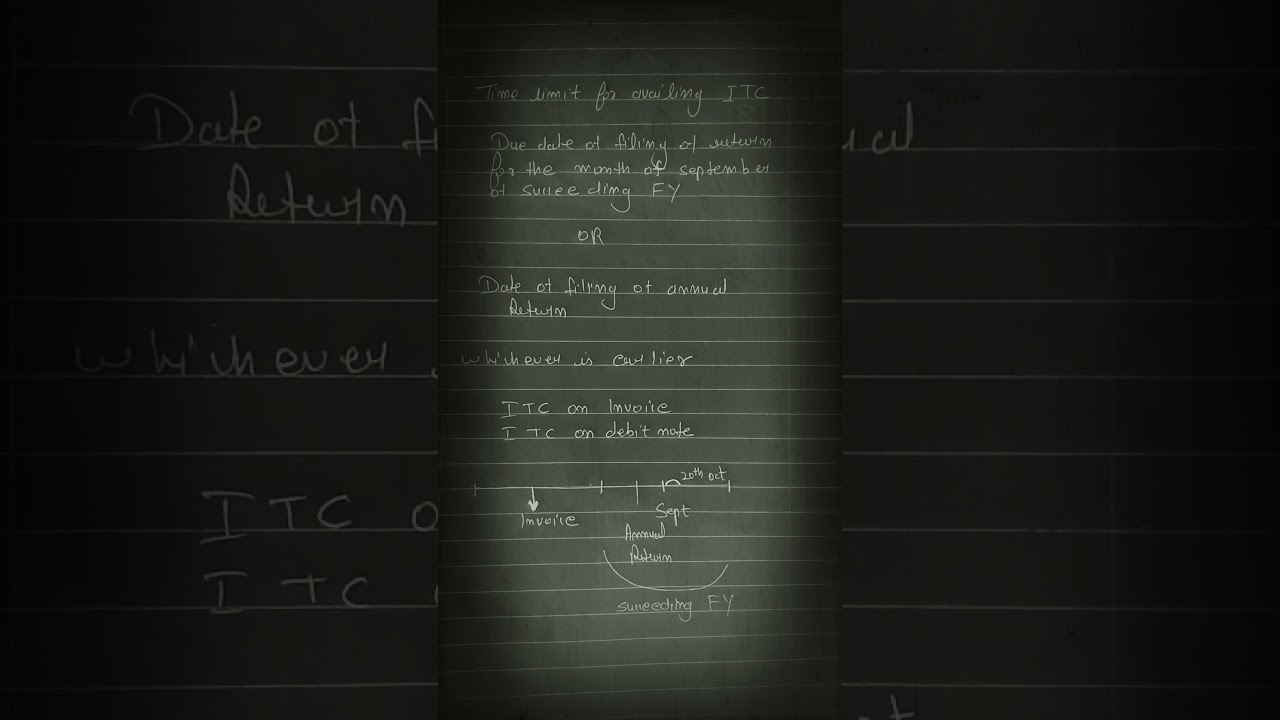 Time limit for availing ITC
Due date of filing of return
for the month of september
of succeeding FY
OR
Date of filing of annual
Return
whichever is earlier
ITC on Invoice
ITC on debit note
20th oct
Invoice
Sept
Annual
Return
succeeding FY